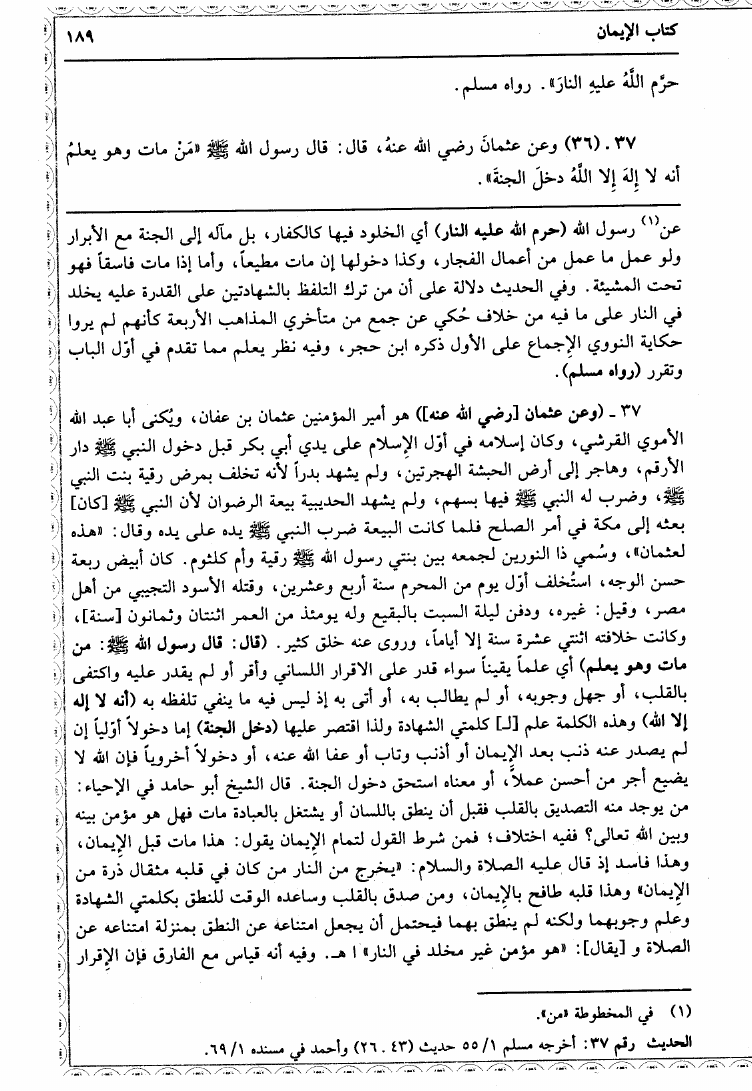 كتاب الإيمان ١٨٩
حرَّم اللَّهُ عليهِ النارَ». رواه مسلم.
٣٧ . (٣٦) وعن عثمانَ رضي الله عنهُ، قال: قال رسول الله ﷺ «مَنْ مات وهو يعلمُ
أنه لا إِلهَ إِلا اللَّهُ دخلَ الجنةَ».
عن(١) رسول الله (حرم الله عليه النار) أي الخلود فيها كالكفار، بل مآله إلى الجنة مع الأبرار
ولو عمل ما عمل من أعمال الفجار، وكذا دخولها إن مات مطيعاً، وأما إذا مات فاسقاً فهو
تحت المشيئة. وفي الحديث دلالة على أن من ترك التلفظ بالشهادتين على القدرة عليه يخلد
في النار على ما فيه من خلاف حُكي عن جمع من متأخري المذاهب الأربعة كأنهم لم يروا
حكاية النووي الإجماع على الأول ذكره ابن حجر، وفيه نظر يعلم مما تقدم في أوّل الباب
وتقرر (رواه مسلم).
٣٧ ـ (وعن عثمان [رضي الله عنه]) هو أمير المؤمنين عثمان بن عفان، ويُكنى أبا عبد الله
الأموي القرشي، وكان إسلامه في أوّل الإسلام على يدي أبي بكر قبل دخول النبي ﷺ دار
الأرقم، وهاجر إلى أرض الحبشة الهجرتين، ولم يشهد بدراً لأنه تخلف بمرض رقية بنت النبي
ﷺ، وضرب له النبي ﷺ فيها بسهم، ولم يشهد الحديبية بيعة الرضوان لأن النبي ﷺ [كان]
بعثه إلى مكة في أمر الصلح فلما كانت البيعة ضرب النبي ﷺ يده على يده وقال: «هذه
لعثمان»، وسُمي ذا النورين لجمعه بين بنتي رسول الله ﷺ رقية وأم كلثوم. كان أبيض ربعة
حسن الوجه، استُخلف أوّل يوم من المحرم سنة أربع وعشرين، وقتله الأسود التجيبي من أهل
مصر، وقيل: غيره، ودفن ليلة السبت بالبقيع وله يومئذ من العمر اثنتان وثمانون [سنة]،
وكانت خلافته اثنتي عشرة سنة إلا أياماً، وروى عنه خلق كثير. (قال: قال رسول الله ﷺ: من
مات وهو يعلم) أي علماً يقيناً سواء قدر على الاقرار اللساني وأقر أو لم يقدر عليه واكتفى
بالقلب، أو جهل وجوبه، أو لم يطالب به، أو أتى به إذ ليس فيه ما ينفي تلفظه به (أنه لا إله
إلا الله) وهذه الكلمة علم [لـ] كلمتي الشهادة ولذا اقتصر عليها (دخل الجنة) إما دخولاً أوّلياً إن
لم يصدر عنه ذنب بعد الإيمان أو أذنب وتاب أو عفا الله عنه، أو دخولاً أخروياً فإن الله لا
يضيع أجر من أحسن عملاً، أو معناه استحق دخول الجنة. قال الشيخ أبو حامد في الإحياء:
من يوجد منه التصديق بالقلب فقبل أن ينطق باللسان أو يشتغل بالعبادة مات فهل هو مؤمن بينه
وبين الله تعالى؟ ففيه اختلاف؛ فمن شرط القول لتمام الإيمان يقول: هذا مات قبل الإيمان،
وهذا فاسد إذ قال عليه الصلاة والسلام: «يخرج من النار من كان في قلبه مثقال ذرة من
الإيمان» وهذا قلبه طافح بالإيمان، ومن صدق بالقلب وساعده الوقت للنطق بكلمتي الشهادة
وعلم وجوبهما ولكنه لم ينطق بهما فيحتمل أن يجعل امتناعه عن النطق بمنزلة امتناعه عن
الصلاة و [يقال]: «هو مؤمن غير مخلد في النار» ا هـ. وفيه أنه قياس مع الفارق فإن الإقرار
(١) في المخطوطة «من».
الحديث رقم ٣٧: أخرجه مسلم ١/ ٥٥ حديث (٤٣ . ٢٦) وأحمد في مسنده ١/ ٦٩.